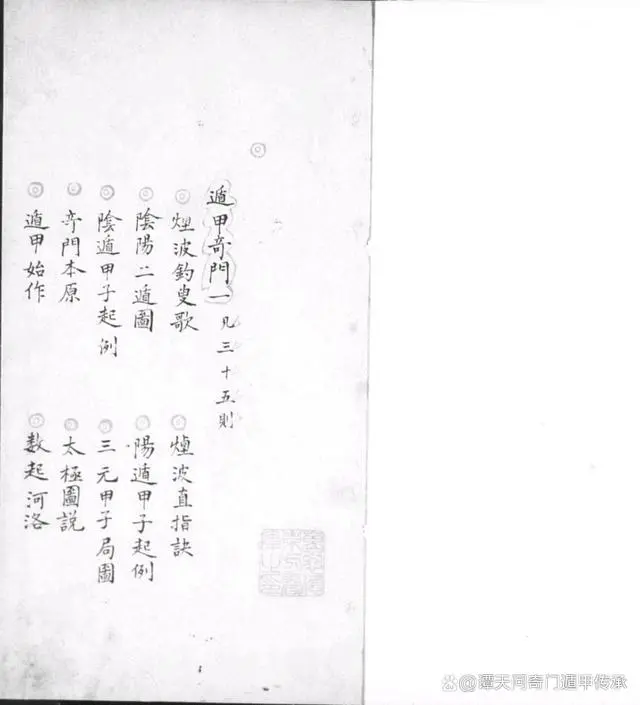 遁甲奇門一 凡三十五則
煙波釣叟歌 煙波直指訣
陰陽二遁圖 陽遁甲子起例
陰遁甲子起例 三元甲子局圖
奇門本原 太極圖説
遁甲始作 数起河洛
@谭天同奇门遁甲传承